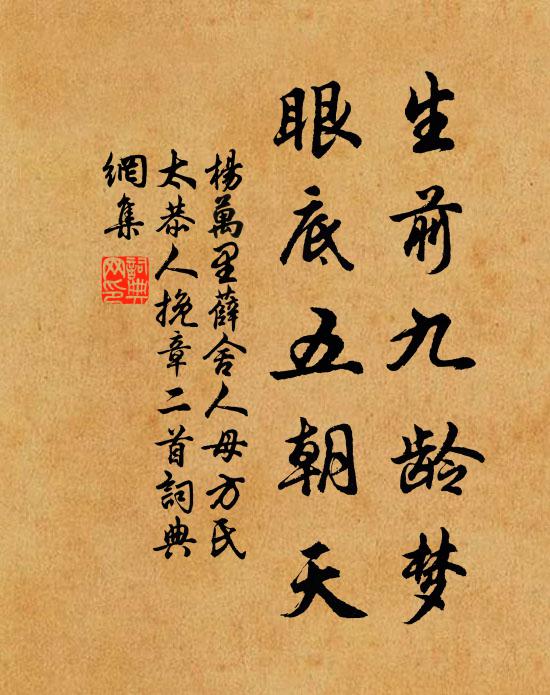 生前九龄梦
眼底五朝天
楊萬里薛舍人母方氏
太恭人挽章二首詞典
網集
詞典
网印